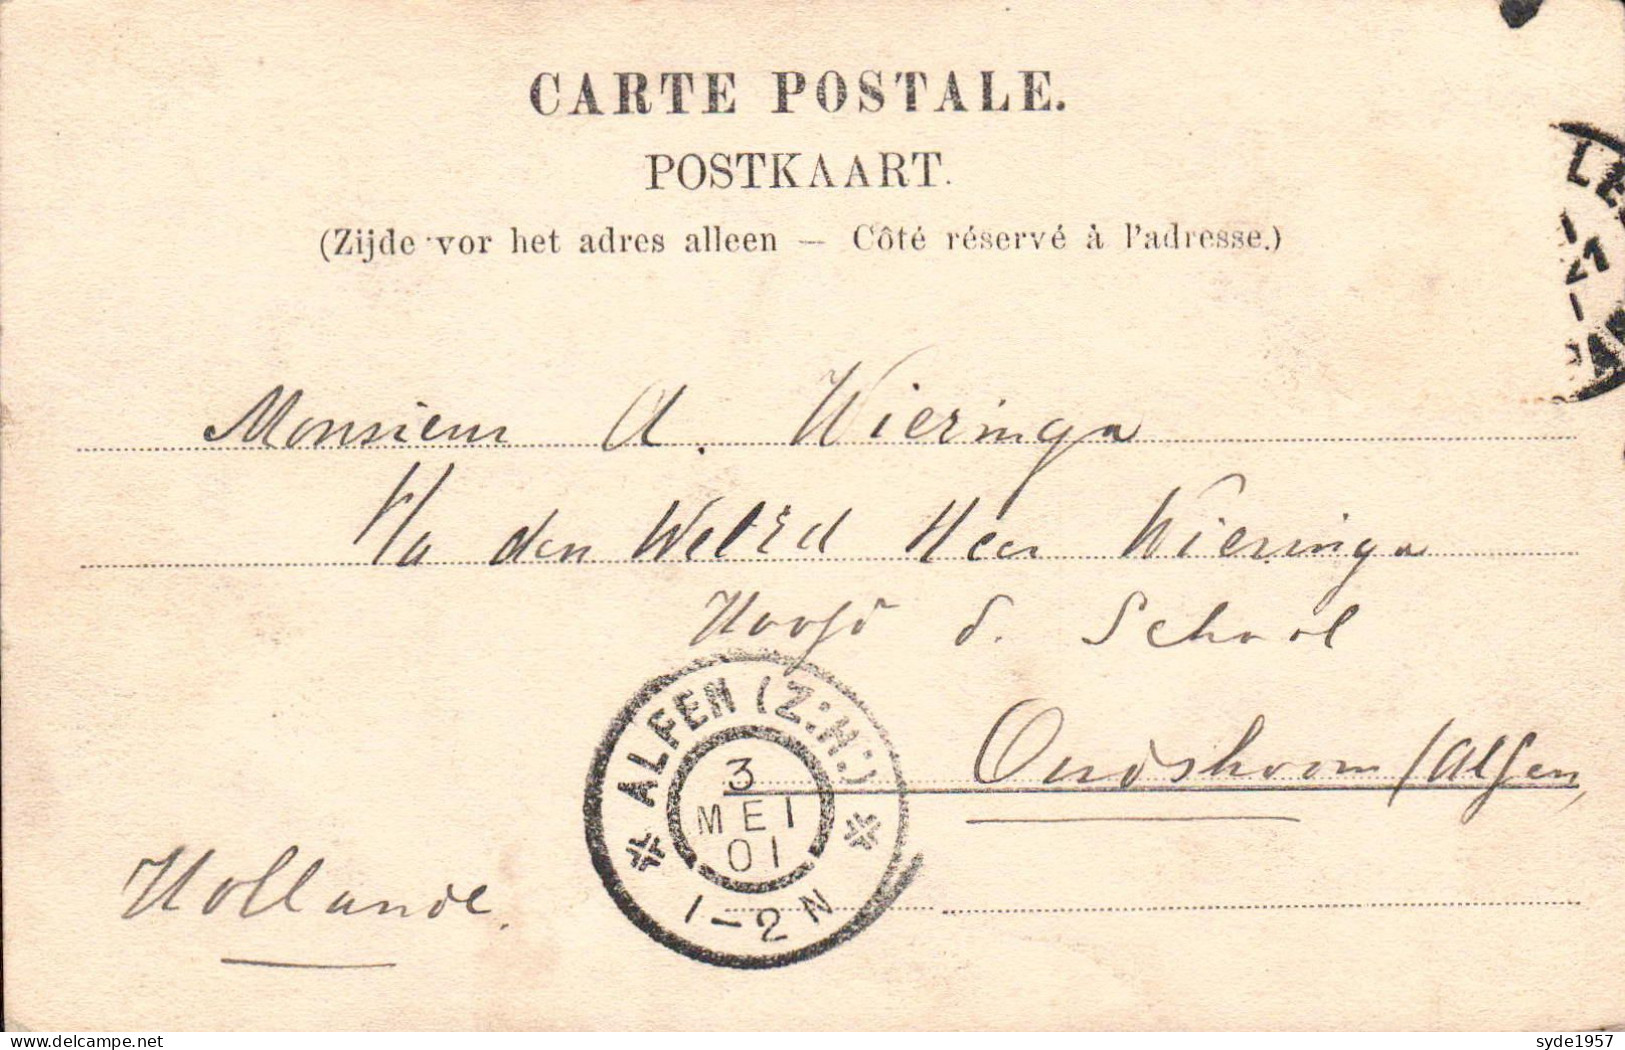 CARTE POSTALE.
POSTKAART.
(Zijde voor het adres alleen — Côté réservé à l'adresse.)
Monsieur A. Wieringa
p/a den WelEd Heer Wieringa
Hoofd d. School
Oudshoorn (Alfen,
Hollande.
ALFEN (Z:H:)
3
MEI
01
1-2 N
syde1957